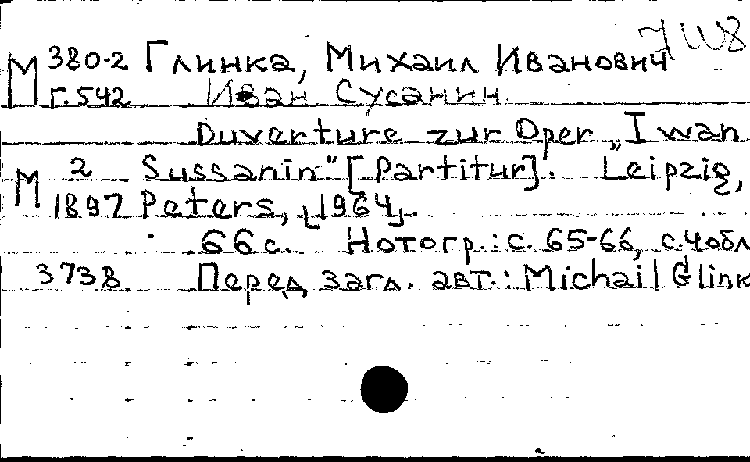 М 380-2 Глинка, Михаил Иванович
Г.542 Иван Сусанин.
Ouverture zur Oper „Iwan
М 2 Sussanin" [Partitur]. Leipzig,
1897 Peters, [1964].
66 с. Нотогр.: с. 65-66, с. 4 обл
3738 Перед загл. авт.: Michail Glink